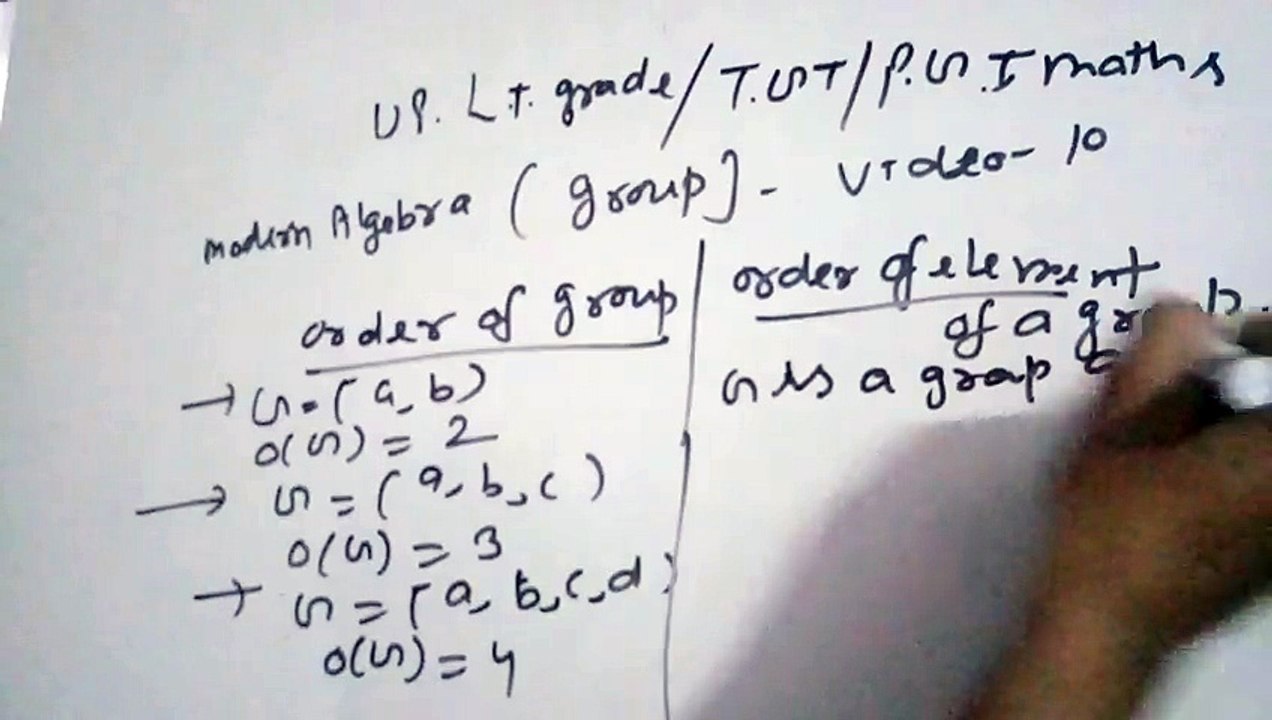 UP. L.T. grade/T.G.T/P.G.T maths
modern Algebra (group] - Video-10
order of group
→ G=(a,b)
o(G) = 2
→ G = (a,b,c)
o(G) = 3
→ G = (a,b,c,d)
o(G) = 4
order of element
of a
G is a group